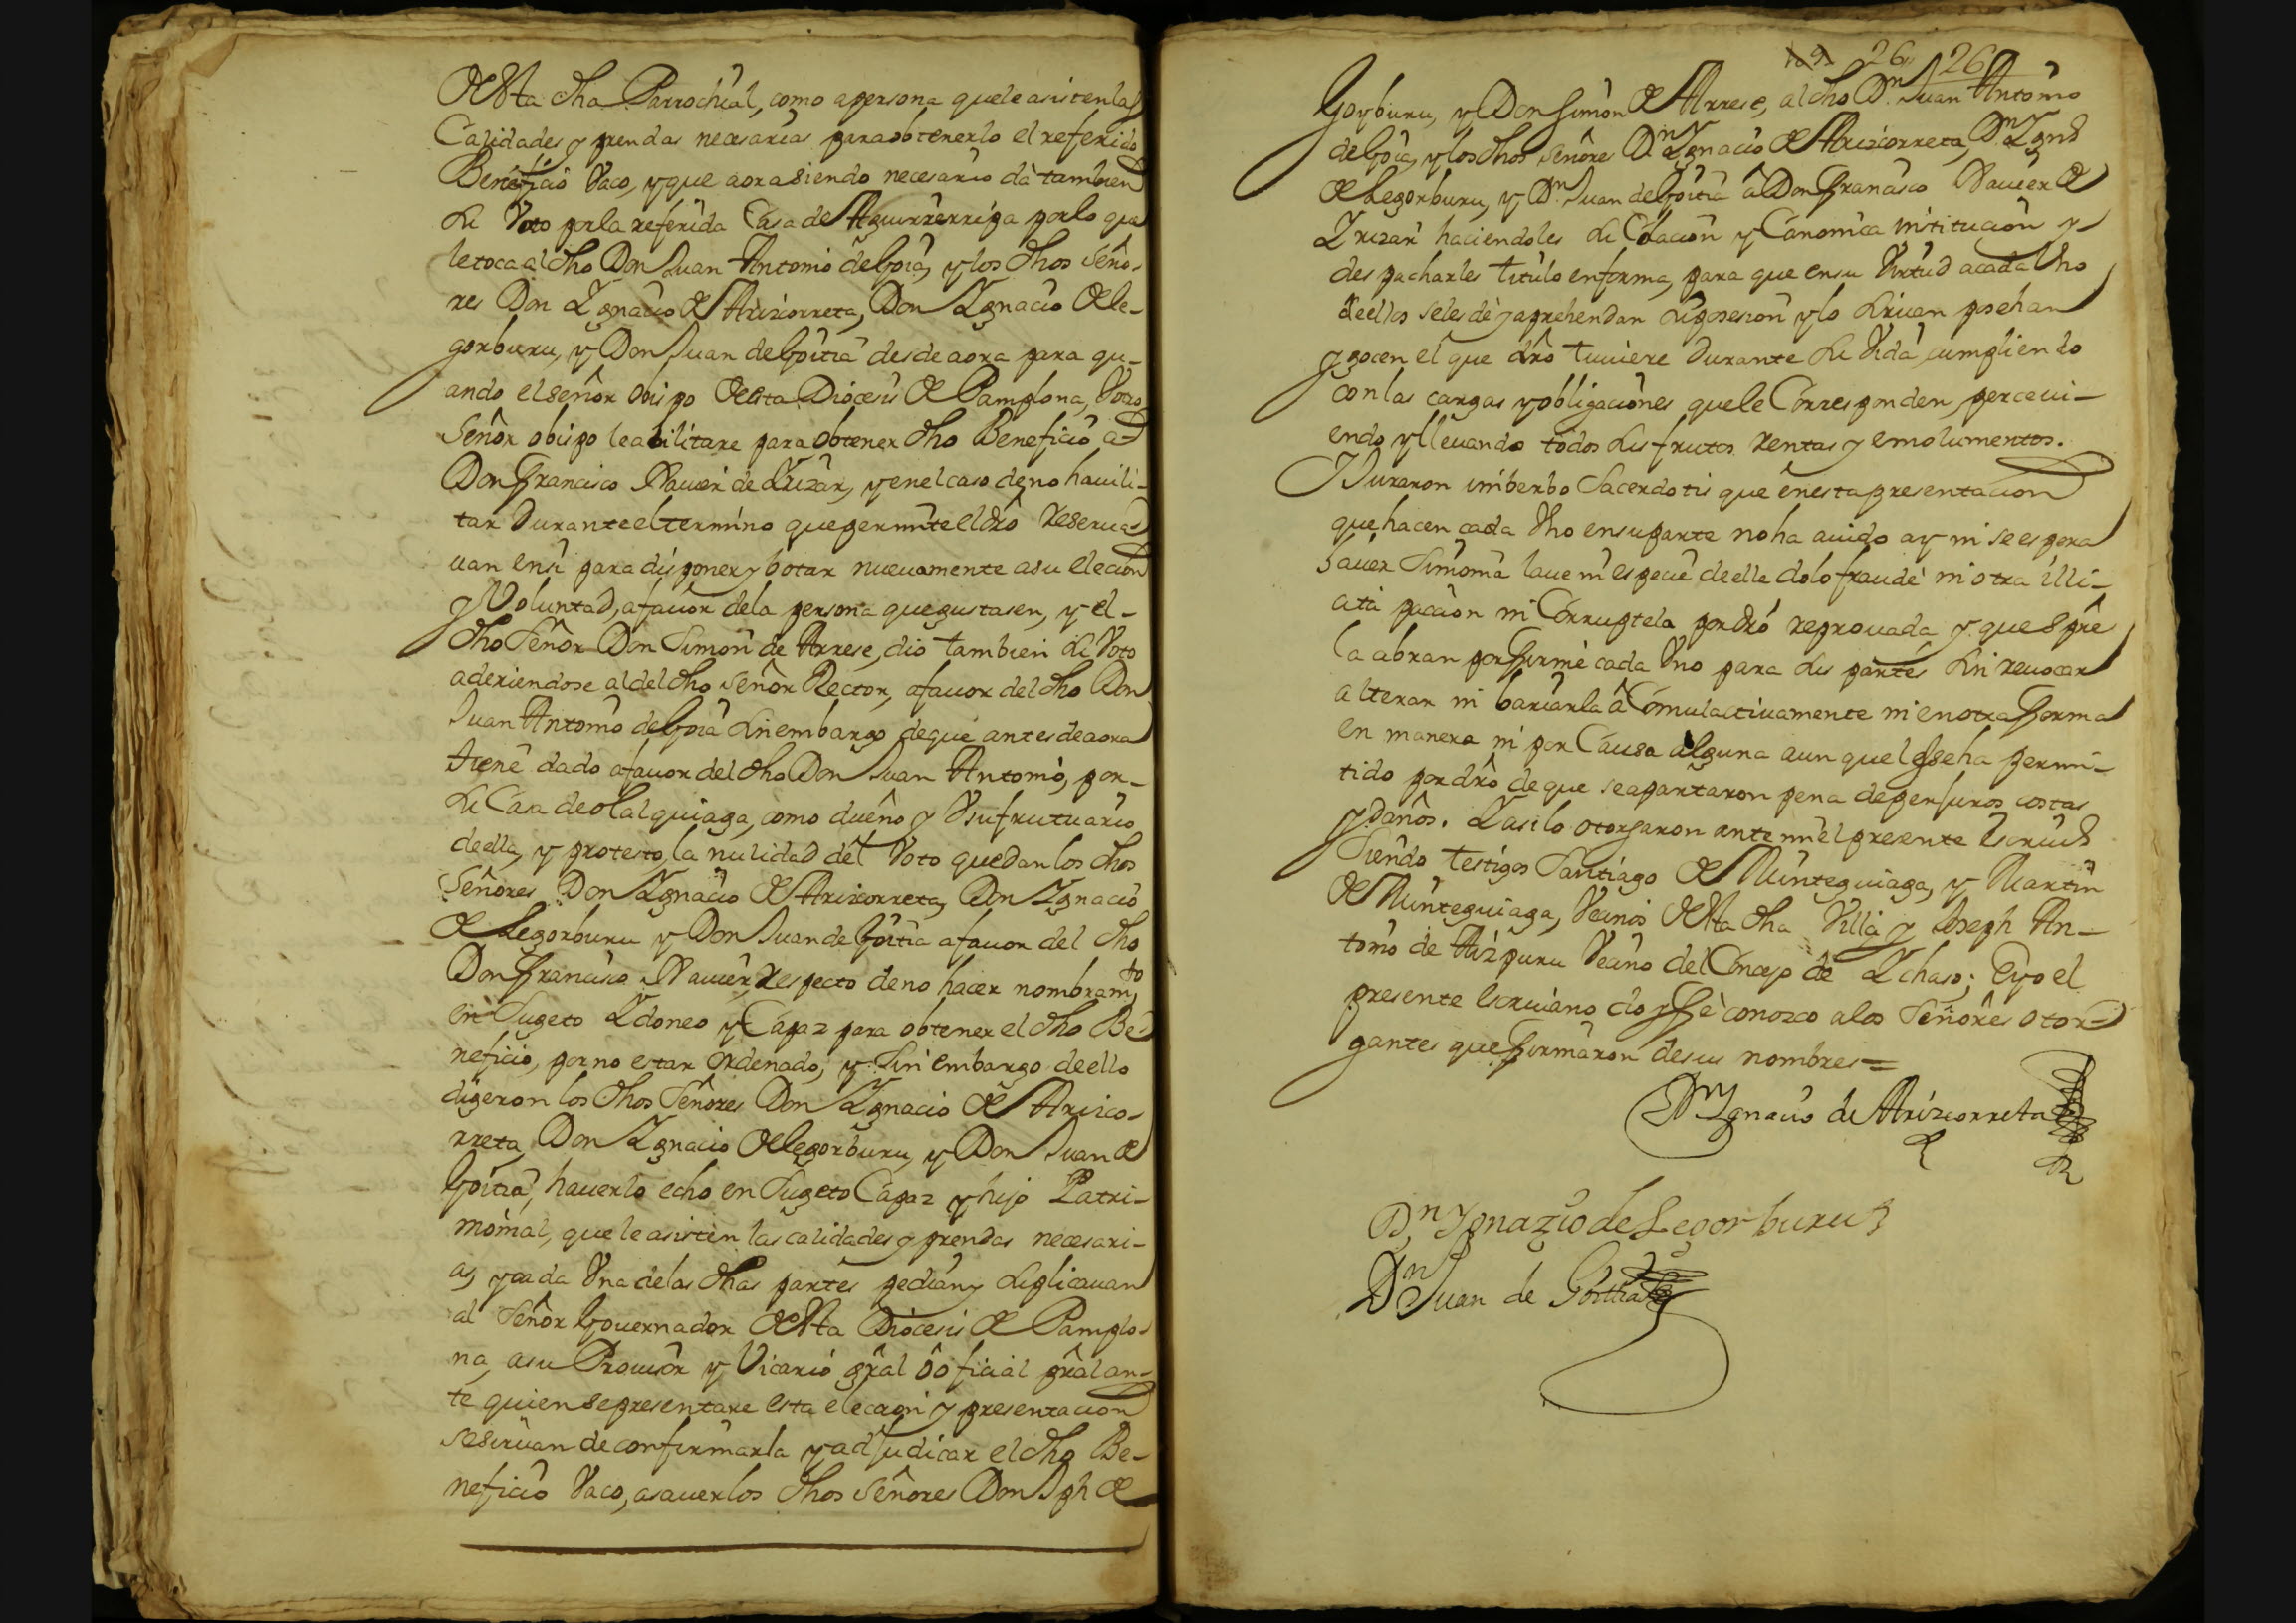 desta dha Parrochial, como apersona quele asisten las
Calidades y prendas necesarias para obtenerlo el referido
Beneficio Vaco, y que aora siendo necesario dà tambien
su Voto por la referida Casa de Aguirrerripa por lo que
le toca al dho Don Juan Antonio de Goia, y los dhos Seño-
res Don Ygnacio de Arizcorreta, Don Ygnacio de Le-
gorburu, y Don Juan de Goitia desde aora para qu-
ando el señor obispo desta Diocesis de Pamplona, V otro
Señor obispo leabilitare para obtener dho Beneficio a
Don Francisco Xauier de Yrizar, y enel caso de no hauili-
tar durante el termino que permite el dro reserua-
uan ensi para disponer y botar nueuamente asu elecion
y Voluntad, afauor dela persona que gustasen, y el
dho Señor Don Simon de Arrese, dió tambien su Voto
aderiendose al del dho señor Rector, afauor del dho Don
Juan Antonio de Goia sin embargo de que antes de aora
tiene dado afauor del dho Don Juan Antonio, por
su Casa de olalquiaga, como dueño y Vsufrutuario
de ella, y protesto la nulidad del Voto que dan los dhos
Señores Don Ygnacio de Arizcorreta, Don Ygnacio
de Legorburu y Don Juan de Goitia afauor del dho
Don Francisco Xauier, Respecto de no hacer nombramto
en Sugeto Ydoneo y Capaz para obtener el dho Be-
neficio, por no estar ordenado; y Sin embargo de ello
digeron los dhos Señores Don Ygnacio de Arizco-
rreta, Don Ygnacio de Legorburu, y Don Juan de
Goitia, hauerlo echo en Sugeto Capaz y hijo Patri-
monial, que le asisten las calidades y prendas necesari-
as, y cada Vna de las dhas partes pedian y suplicauan
al Señor Gouernador desta Diocesis de Pamplo-
na, asu Prouisor y Vicario gral ô oficial pral an-
te quien se presentare esta elecion y presentacion
se siruan de confirmarla y adjudicar el dho Be-
neficio Vaco, asauer los dhos Señores Don Jph de
26 26
Goyburu, y Don Simon de Arrese, al dho Dn Juan Antonio
de Goia, y los dhos señores Dn Ygnacio de Arizcorreta, Dn Ygnº
de Legorburu, y Dn Juan de Goitia â Don Francisco Xauier de
Yrizar haciendoles su Colacion y Canonica institucion y
despacharles titulo enforma, para que en su Virtud acada Vno
de ellos seles dè y aprehendan su posesion y lo siruan posehan
y gocen el que dro tuuiere durante su Vida, cumpliendo
con las cargas y obligaciones quele Corresponden, perceui-
endo y lleuando todos sus frutos rentas y emolumentos.
Y Juraron inberbo Sacerdotis que en esta presentacion
que hacen cada Vno ensu parte no ha auido ay ni se espera
hauer Simonia laue ni especie de elle dolo fraude ni otra illi-
cita paccion ni Corruptela por dró reprouada y que Spre
la abran por firme cada Vno para sus partes Sin reuocar
alterar ni bariarla â Comulactiuamente ni en otra forma
en manera ni por Causa alguna aun queles seha permi-
tido por dro de que se apartaron pena de perjuros costas
y daños. Y asilo otorgaron ante mi el presente Escriuº
Siendo testigos Santiago de Munteguiaga, y Martin
de Munteguiaga, Vecinos desta dha Villa y Joseph An-
tonio de Aizpuru Vecino del Concejo de Ychaso; E yo el
presente escriuano doy fe conozco alos Señores otor-
gantes que firmaron de sus nombres=
Dn Ygnacio de Arizcorreta
Dn Ygnazio de Legorburu
Dn Juan de Goitia